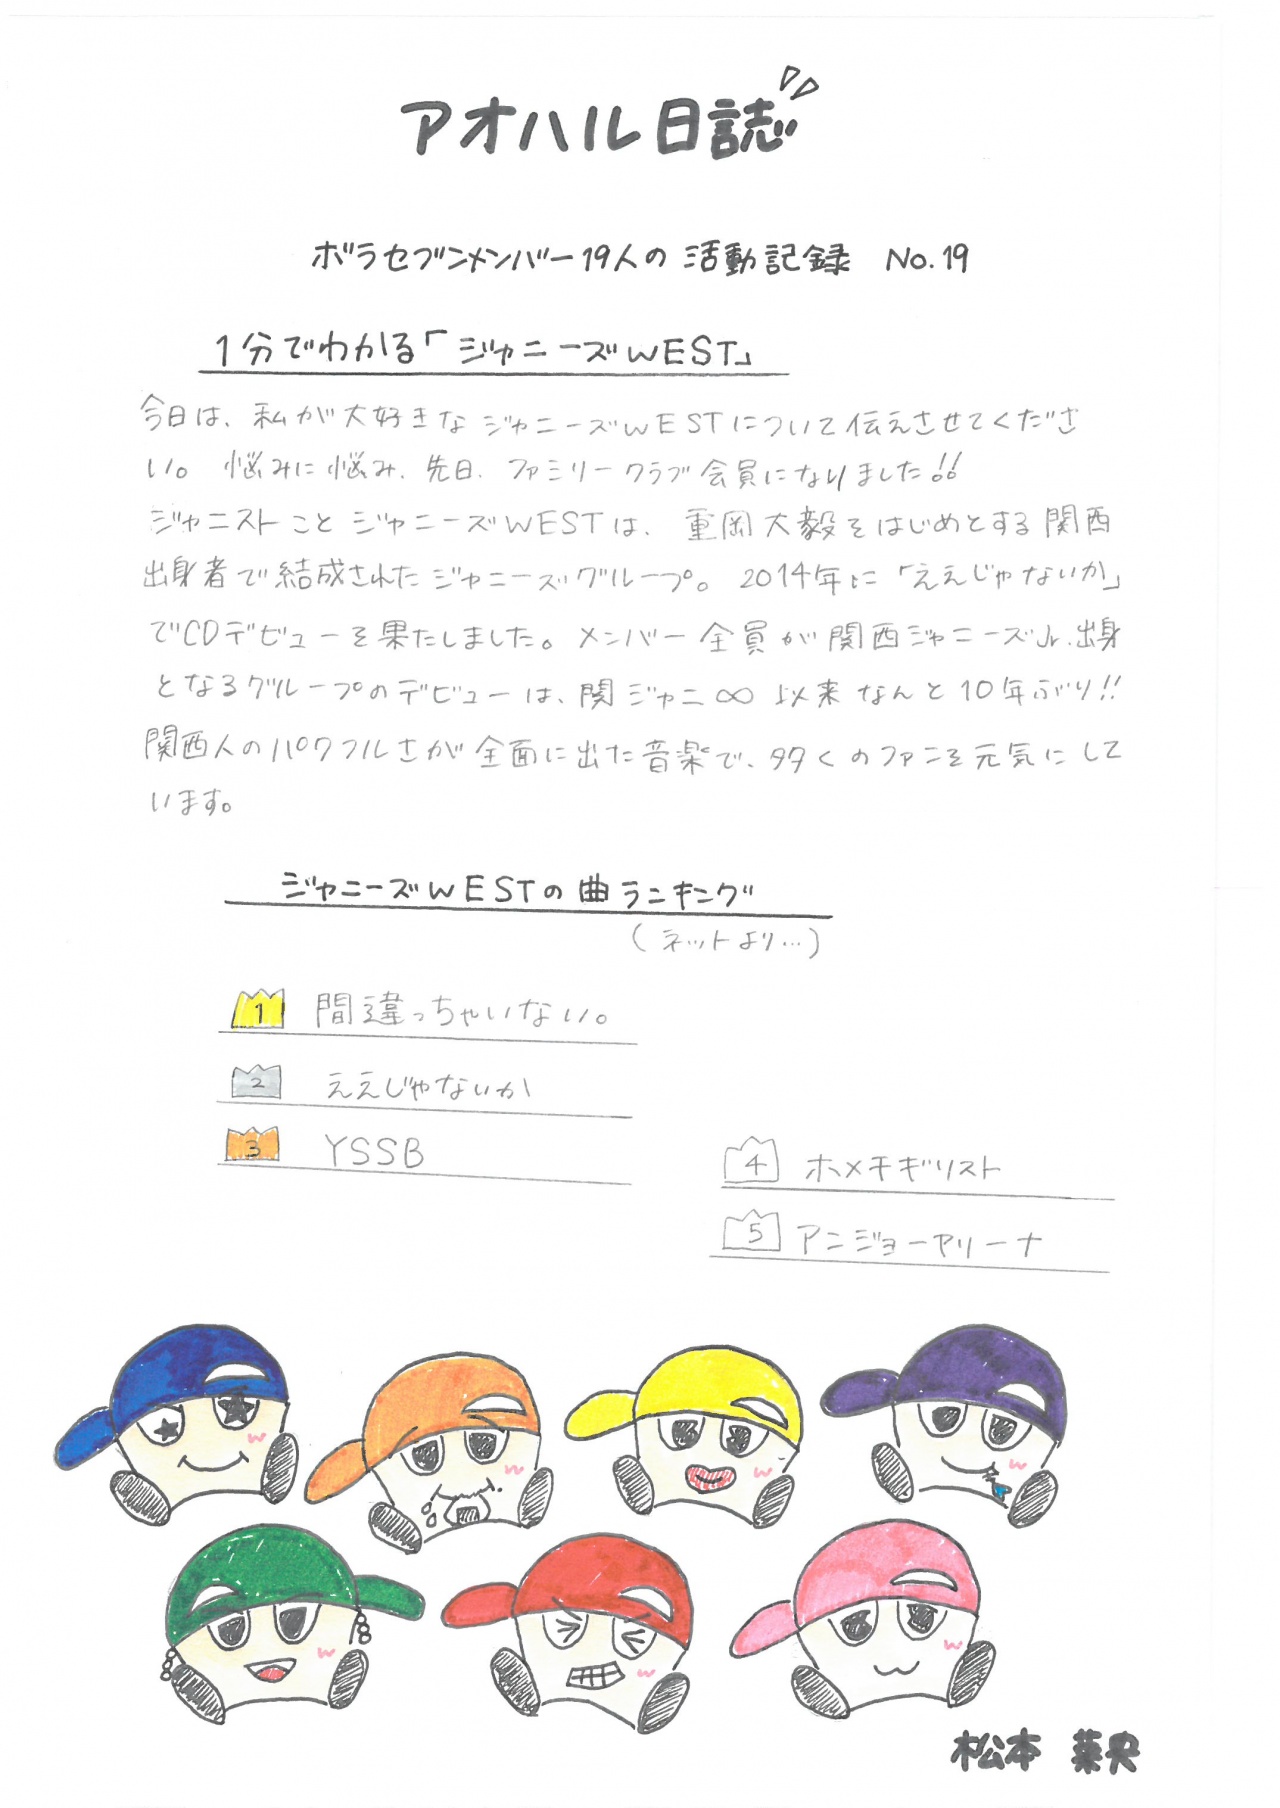 アオハル日誌
ボラセブンメンバー19人の活動記録 No.19
1分でわかる「ジャニーズWEST」
今日は、私が大好きなジャニーズWESTについて伝えさせてくださ
い。悩みに悩み、先日、ファミリークラブ会員になりました!!
ジャニストこと ジャニーズWESTは、重岡大毅をはじめとする関西
出身者で結成されたジャニーズグループ。2014年に「ええじゃないか」
でCDデビューを果たしました。メンバー全員が関西ジャニーズJr.出身
となるグループのデビューは、関ジャニ∞以来なんと10年ぶり!!
関西人のパワフルさが全面に出た音楽で、多くのファンを元気にして
います。
ジャニーズWESTの曲ランキング
(ネットより…)
1 間違っちゃいない。
2 ええじゃないか
3 YSSB
4 ホメチギリスト
5 アンジョーヤリーナ
松本 菜央